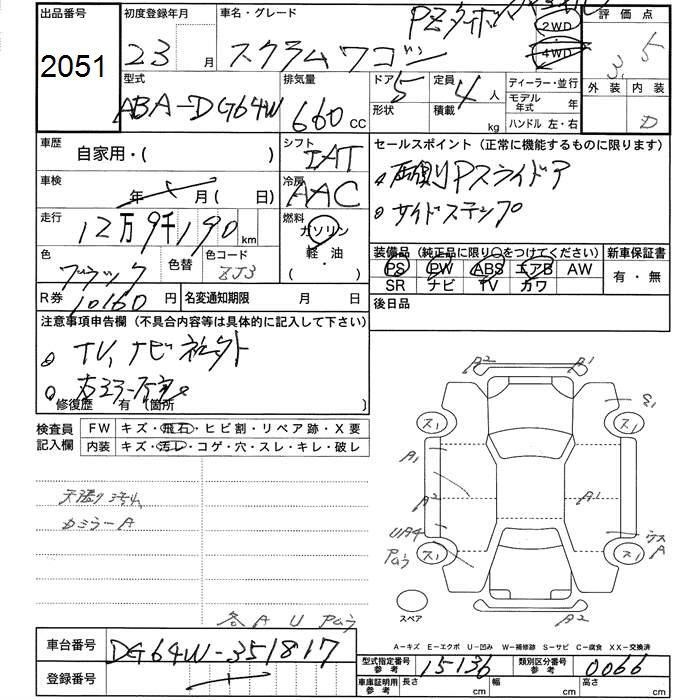 出品番号 初度登録年月 車名・グレード 評価点
PZターボ
2051 23 月 スクラムワゴン 2WD 4WD 3.5
型式 排気量 ドア 定員 ディーラー・並行 外装 内装
ABA-DG64W 660 CC 5 4 人 モデル年式 年 D
形状 積載 kg ハンドル 左・右
車歴 自家用・( ) シフト IAT セールスポイント (正常に機能するものに限ります)
車検 年 月( 日) 冷房 AAC 両側Pスライドア
走行 12万9千190km 燃料 ガソリン サイドステップ
色 色替 色コード 軽・油 装備品 (純正品に限り○をつけてください) 新車保証書
ブラック ZJ3 ( ・ ) PS PW ABS エアB AW 有・無
R券 10160 円 名変通知期限 月 日 SR ナビ TV カワ
後日品
注意事項申告欄 (不具合内容等は具体的に記入して下さい)
TV、ナビ
修復歴 有 (箇所 )
検査員記入欄 FW キズ・飛石・ヒビ割・リペア跡・X要
内装 キズ・汚レ・コゲ・穴・スレ・キレ・破レ
A2 A1
ス1 ス1
A1
A2 A1
UA4
ス1 ス1
A
カミラーA
スペア A2
各 A U
A-キズ E-エクボ U-凹み W-補修跡 S-サビ C-腐食 XX-交換済
車台番号 DG64W-351817 型式指定番号 参考 15136 類別区分番号 参考 0066
登録番号 車庫証明用 参考 長さ cm 幅 cm 高さ cm